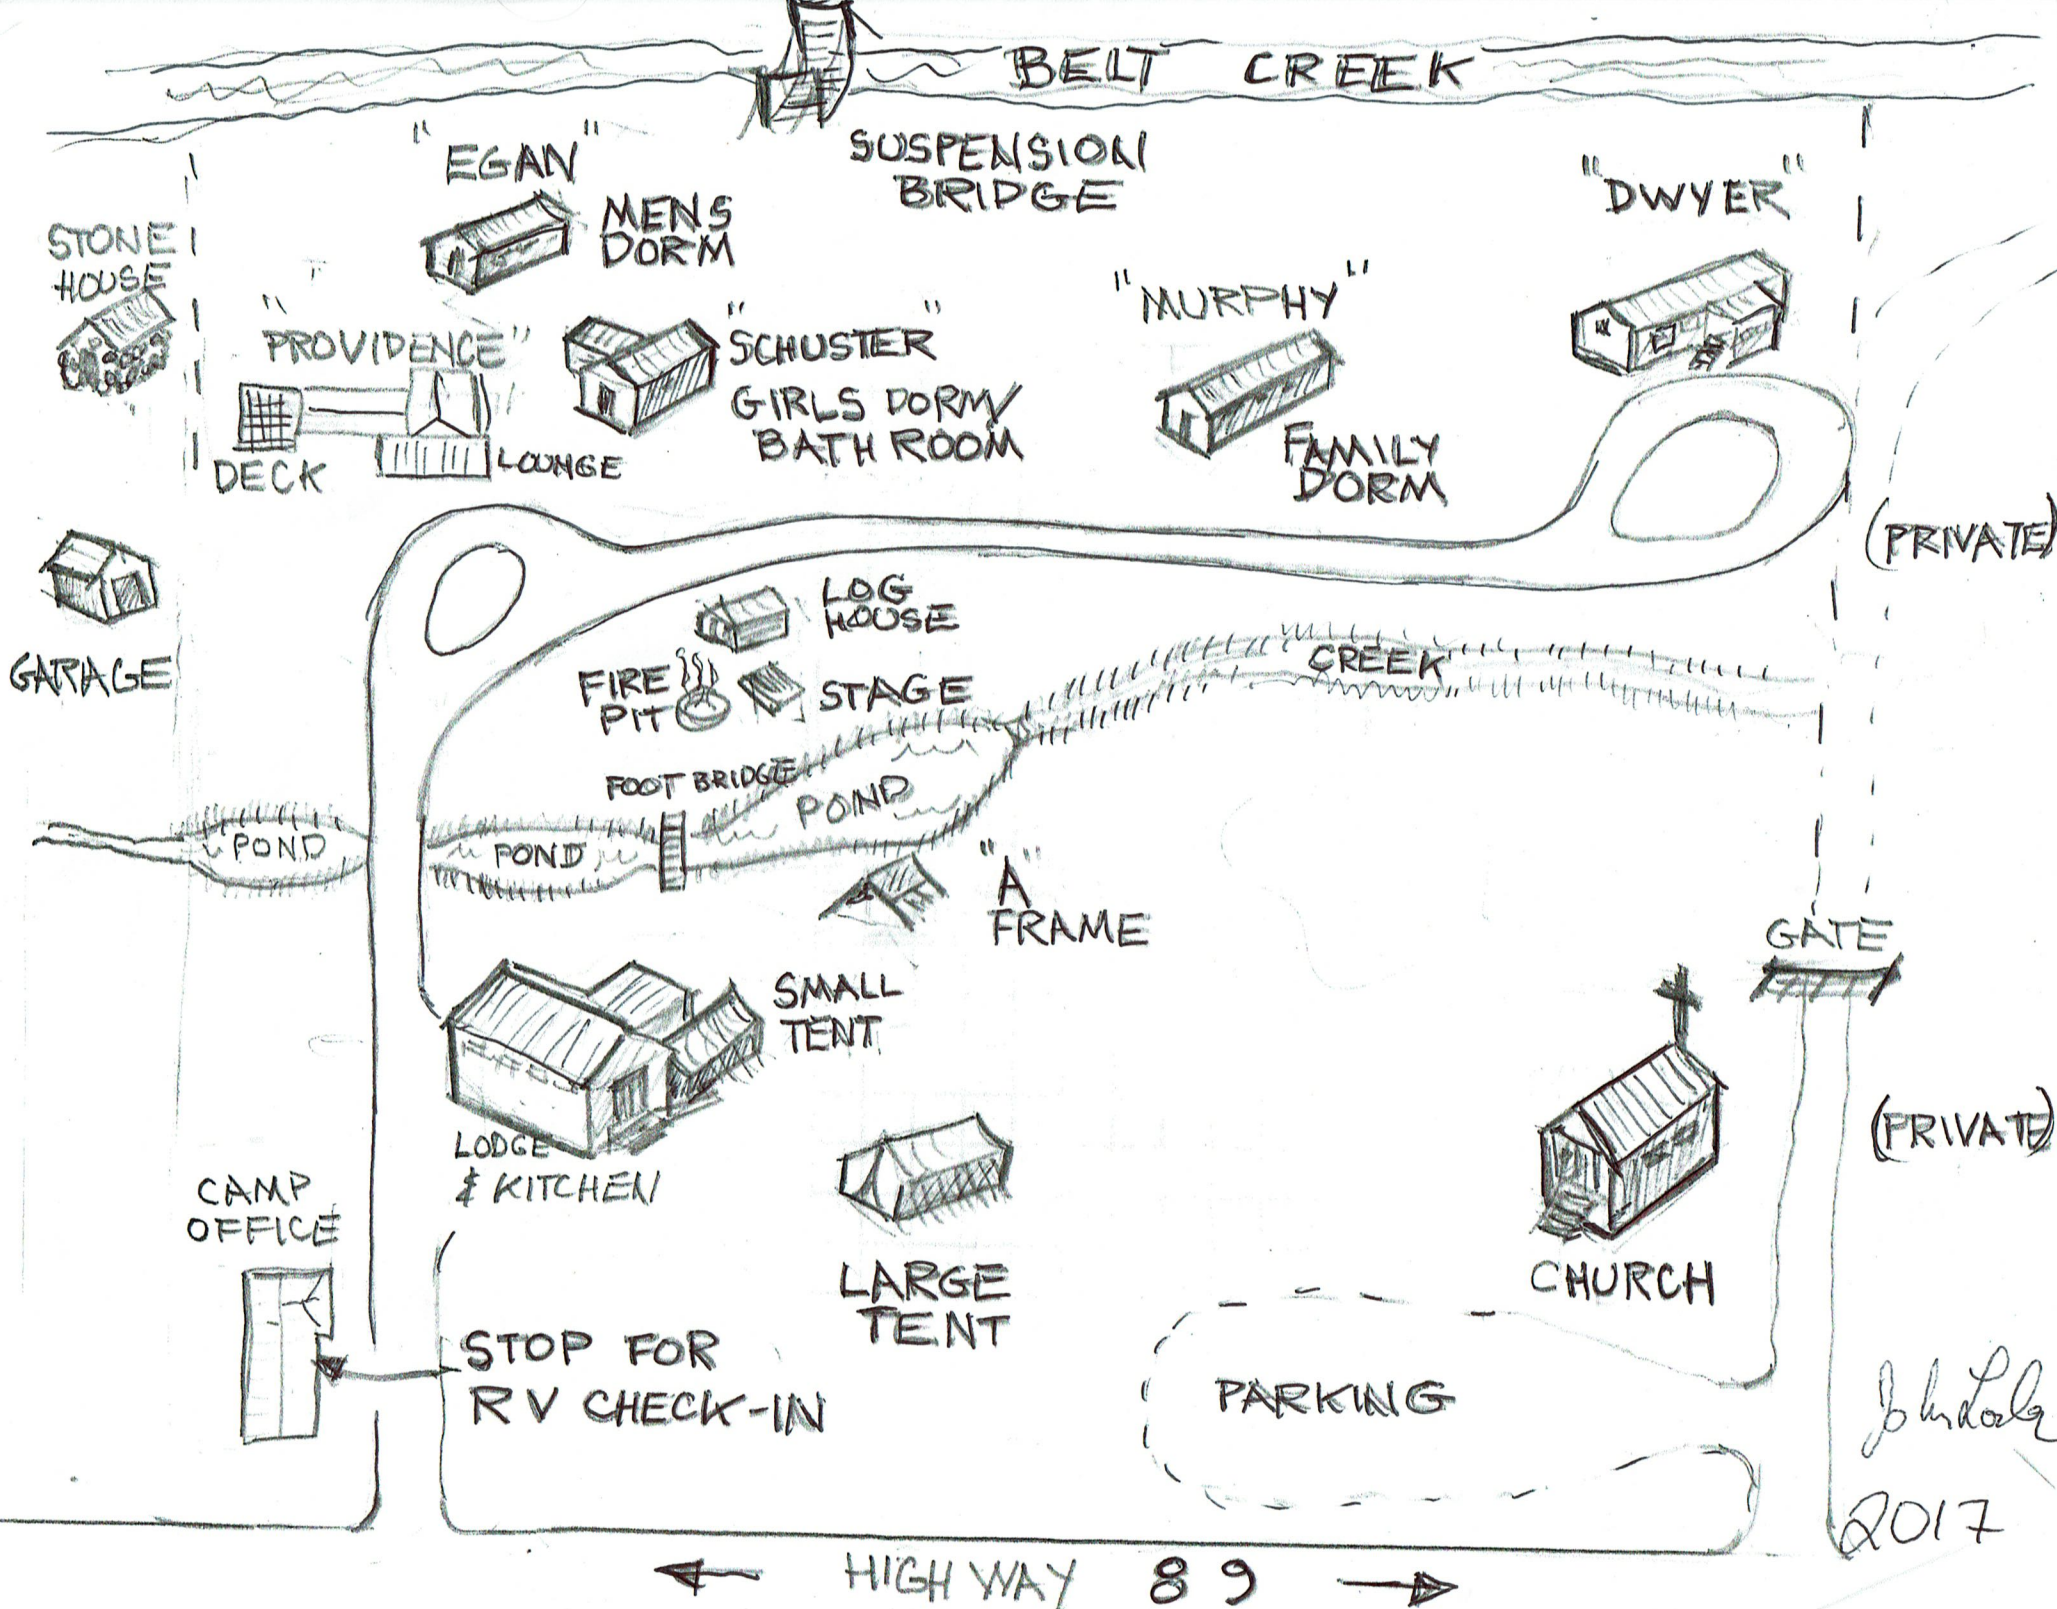 BELT CREEK
SUSPENSION
BRIDGE
"EGAN"
MENS
DORM
"DWYER"
STONE
HOUSE
"PROVIDENCE"
DECK
LOUNGE
"SCHUSTER"
GIRLS DORM/
BATH ROOM
"MURPHY"
FAMILY
DORM
(PRIVATE)
GARAGE
LOG
HOUSE
FIRE
PIT
STAGE
CREEK
FOOT BRIDGE
POND
POND
POND
"A"
FRAME
GATE
SMALL
TENT
LODGE
& KITCHEN
(PRIVATE)
CAMP
OFFICE
LARGE
TENT
CHURCH
STOP FOR
RV CHECK-IN
PARKING
John
2017
HIGHWAY 89